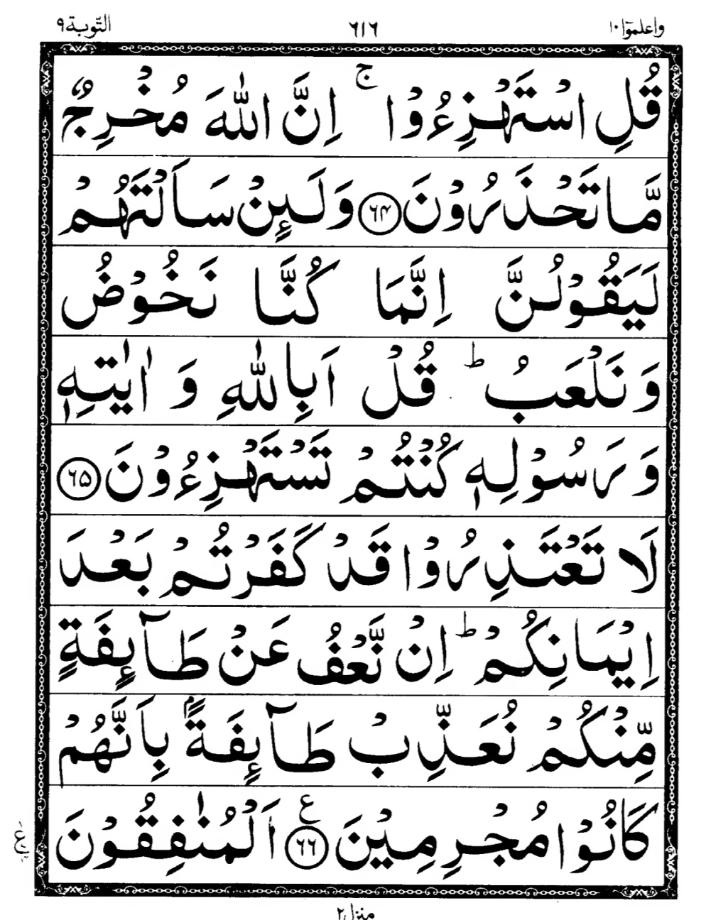 واعلموۤا ١٠ ٦١٦ التّوبة ٩
قُلِ اسْتَهْزِءُوْا ۚ اِنَّ اللّٰهَ مُخْرِجٌ
مَّا تَحْذَرُوْنَ ﴿۶۴﴾ وَلَىِٕنْ سَاَلْتَهُمْ
لَيَقُوْلُنَّ اِنَّمَا كُنَّا نَخُوْضُ
وَنَلْعَبُ ؕ قُلْ اَبِاللّٰهِ وَ اٰيٰتِهٖ
وَ رَسُوْلِهٖ كُنْتُمْ تَسْتَهْزِءُوْنَ ﴿۶۵﴾
لَا تَعْتَذِرُوْا قَدْ كَفَرْتُمْ بَعْدَ
اِيْمَانِكُمْ ؕ اِنْ نَّعْفُ عَنْ طَآىِٕفَةٍ
مِّنْكُمْ نُعَذِّبْ طَآىِٕفَةًۢ بِاَنَّهُمْ
كَانُوْا مُجْرِمِيْنَ ﴿۶۶﴾ ع اَلْمُنٰفِقُوْنَ
ع
منزل ٢